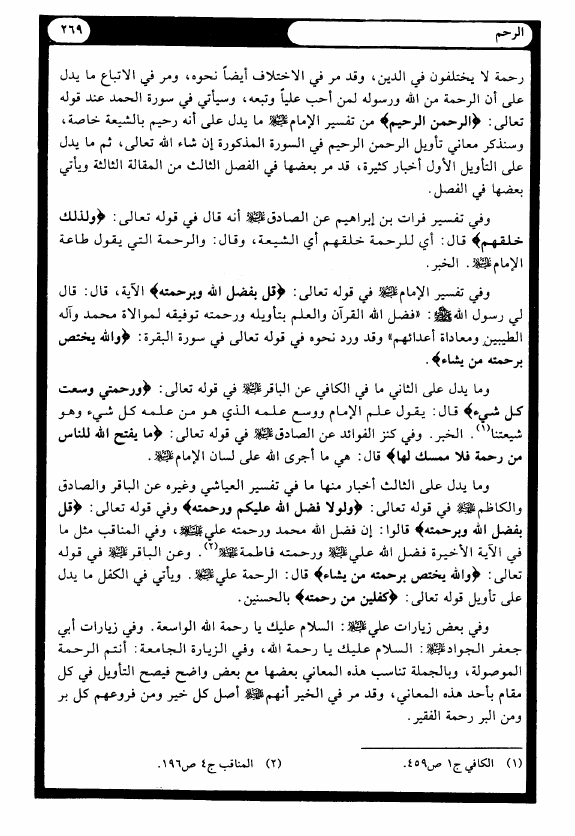 الرحم
٢٦٩
رحمة لا يختلفون في الدين، وقد مر في الاختلاف أيضاً نحوه، ومر في الاتباع ما يدل
على أن الرحمة من الله ورسوله لمن أحب علياً وتبعه، وسيأتي في سورة الحمد عند قوله
تعالى: ﴿الرحمن الرحيم﴾ من تفسير الإمام عليه السلام ما يدل على أنه رحيم بالشيعة خاصة،
وسنذكر معاني تأويل الرحمن الرحيم في السورة المذكورة إن شاء الله تعالى، ثم ما يدل
على التأويل الأول أخبار كثيرة، قد مر بعضها في الفصل الثالث من المقالة الثالثة ويأتي
بعضها في الفصل.
وفي تفسير فرات بن إبراهيم عن الصادق عليه السلام أنه قال في قوله تعالى: ﴿ولذلك
خلقهم﴾ قال: أي للرحمة خلقهم أي الشيعة، وقال: والرحمة التي يقول طاعة
الإمام عليه السلام. الخبر.
وفي تفسير الإمام عليه السلام في قوله تعالى: ﴿قل بفضل الله وبرحمته﴾ الآية، قال: قال
لي رسول الله ﷺ: «فضل الله القرآن والعلم بتأويله ورحمته توفيقه لموالاة محمد وآله
الطيبين ومعاداة أعدائهم» وقد ورد نحوه في قوله تعالى في سورة البقرة: ﴿والله يختص
برحمته من يشاء﴾.
وما يدل على الثاني ما في الكافي عن الباقر عليه السلام في قوله تعالى: ﴿ورحمتي وسعت
كل شيء﴾ قال: يقول علم الإمام ووسع علمه الذي هو من علمه كل شيء وهو
شيعتنا(١). الخبر. وفي كنز الفوائد عن الصادق عليه السلام في قوله تعالى: ﴿ما يفتح الله للناس
من رحمة فلا ممسك لها﴾ قال: هي ما أجرى الله على لسان الإمام عليه السلام.
وما يدل على الثالث أخبار منها ما في تفسير العياشي وغيره عن الباقر والصادق
والكاظم عليه السلام في قوله تعالى: ﴿ولولا فضل الله عليكم ورحمته﴾ وفي قوله تعالى: ﴿قل
بفضل الله وبرحمته﴾ قالوا: إن فضل الله محمد ورحمته علي عليه السلام، وفي المناقب مثل ما
في الآية الأخيرة فضل الله علي عليه السلام ورحمته فاطمة عليها السلام(٢). وعن الباقر عليه السلام في قوله
تعالى: ﴿والله يختص برحمته من يشاء﴾ قال: الرحمة علي عليه السلام. ويأتي في الكفل ما يدل
على تأويل قوله تعالى: ﴿كفلين من رحمته﴾ بالحسنين.
وفي بعض زيارات علي عليه السلام: السلام عليك يا رحمة الله الواسعة. وفي زيارات أبي
جعفر الجواد عليه السلام: السلام عليك يا رحمة الله، وفي الزيارة الجامعة: أنتم الرحمة
الموصولة، وبالجملة تناسب هذه المعاني بعضها مع بعض واضح فيصح التأويل في كل
مقام بأحد هذه المعاني، وقد مر في الخبر أنهم عليهم السلام أصل كل خير ومن فروعهم كل بر
ومن البر رحمة الفقير.
(١) الكافي ج١ ص٤٥٩. (٢) المناقب ج٤ ص١٩٦.